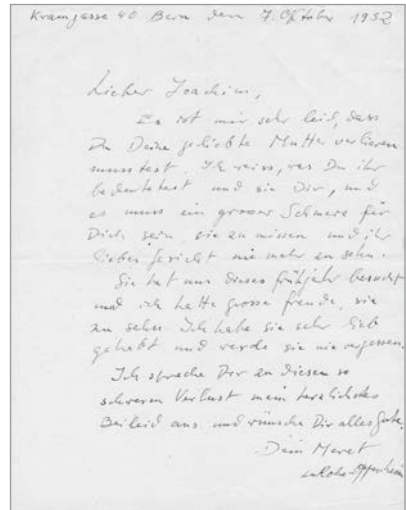 Kramgasse 40 Bern den 7. Oktober 1952
Lieber Joachim,
Es ist mir sehr leid, dass
Du Deine geliebte Mutter verlieren
musstest. Ich weiss, was Du ihr
bedeutetest und sie Dir, und
es muss ein grosser Schmerz für
Dich sein, sie zu missen und ihr
liebes Gesicht nie mehr zu sehn.
Sie hat uns dieses Frühjahr besucht
und ich hatte grosse Freude, sie
zu sehn. Ich habe sie sehr lieb
gehabt und werde sie nie vergessen.
Ich spreche Dir zu diesem so
schweren Verlust mein herzlichstes
Beileid aus und wünsche Dir alles Gute.
Dein Meret
Oppenheim